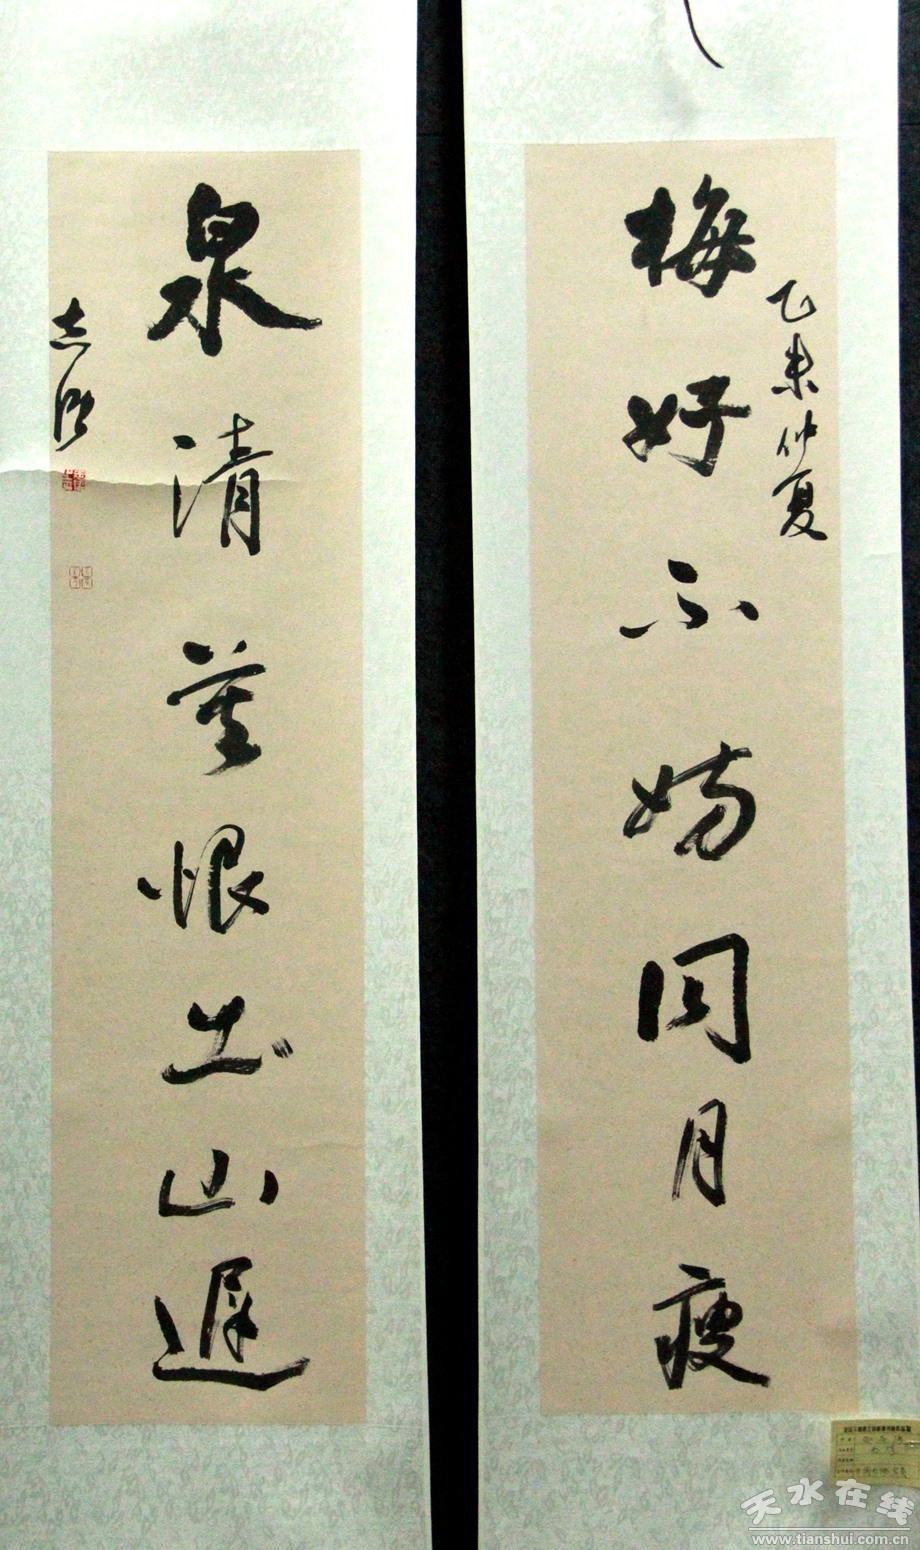 乙未仲夏
梅好不妨同月瘦
泉清莫恨出山遲
志
天水在线
www.tianshui.com.cn